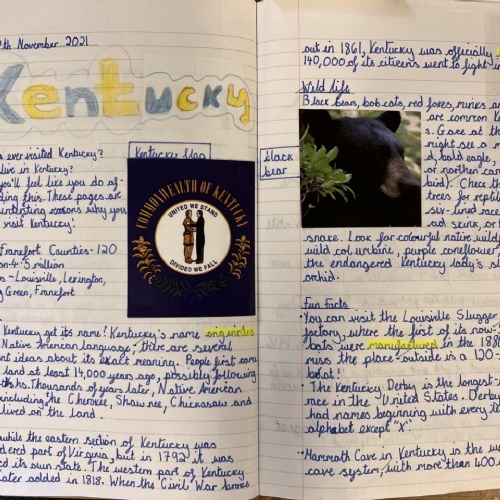 th November 2021
Kentucky
s ever visited Kentucky?
live in Kentucky?
you'll feel like you do af-
ding this. These pages are
ntertaining reasons why you
visit Kentucky!
Kentucky flag
COMMONWEALTH OF KENTUCKY
UNITED WE STAND
DIVIDED WE FALL
Frankfort Counties - 120
4.5 million
s - Louisville, Lexington,
g Green, Frankfort
Kentucky get its name? Kentucky's name originates
Native American language, there are several
nt ideas about its exact meaning. People first came
land at least 14,000 years ago, possibly following
ths. Thousands of years later, Native American
including the Cherokee, Shawnee, Chickasaw and
lived on the land.
while the eastern section of Kentucky was
dered part of Virginia, but in 1792 it was
ed its own state. The western part of Kentucky
later added in 1818. When the Civil War broke
out in 1861, Kentucky was officially
140,000 of its citizens went to fight in
Wild life
Black bears, bob cats, red foxes, minks and
are common Ke
s. Gaze at the
might see a m
d, bald eagle,
or northern cari
bird). Check
trees for reptile
six-lined race
ad skink, or
snake. Look for colourful native wild
wild columbine, purple coneflower
the endangered Kentucky lady's sl
orchid.
black
bear
Fun Facts
You can visit the Louisville Slugger
factory, where the first of its now-
bats were manufactured in the 188
miss the place - outside is a 120-
bat!
The Kentucky Derby is the longest-
race in the United States. Derby
had names beginning with every le
alphabet except "X".
Mammoth Cave in Kentucky is the wo
cave system, with more than 400